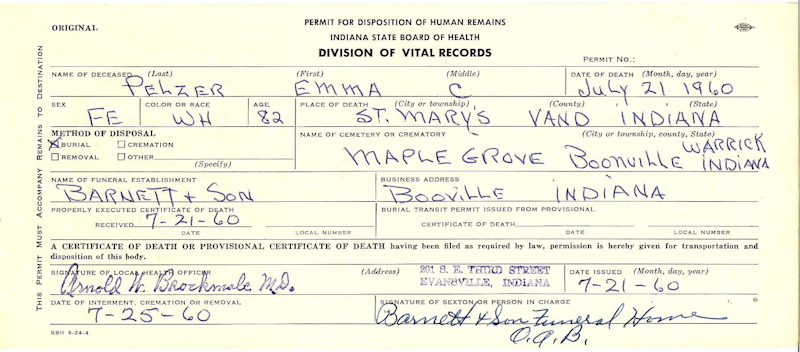 ORIGINAL
PERMIT FOR DISPOSITION OF HUMAN REMAINS
INDIANA STATE BOARD OF HEALTH
DIVISION OF VITAL RECORDS
PERMIT NO.:
THIS PERMIT MUST ACCOMPANY REMAINS TO DESTINATION
NAME OF DECEASED (Last) (First) (Middle) DATE OF DEATH (Month, day, year)
PELZER EMMA C July 21 1960
SEX COLOR OR RACE AGE PLACE OF DEATH (City or township) (County) (State)
FE WH 82 ST. MARY'S VAND INDIANA
METHOD OF DISPOSAL NAME OF CEMETERY OR CREMATORY (City or township, county, State)
X BURIAL CREMATION
REMOVAL OTHER
(Specify)
MAPLE GROVE BOONVILLE WARRICK INDIANA
NAME OF FUNERAL ESTABLISHMENT BUSINESS ADDRESS
BARNETT + SON BOOVILLE INDIANA
PROPERLY EXECUTED CERTIFICATE OF DEATH BURIAL TRANSIT PERMIT ISSUED FROM PROVISIONAL
RECEIVED 7-21-60 CERTIFICATE OF DEATH
DATE LOCAL NUMBER DATE LOCAL NUMBER
A CERTIFICATE OF DEATH OR PROVISIONAL CERTIFICATE OF DEATH having been filed as required by law, permission is hereby given for transportation and
disposition of this body.
SIGNATURE OF LOCAL HEALTH OFFICER (Address) 201 S. E. THIRD STREET DATE ISSUED (Month, day, year)
Arnold W. Brockmole M.D. EVANSVILLE, INDIANA 7-21-60
DATE OF INTERMENT, CREMATION OR REMOVAL SIGNATURE OF SEXTON OR PERSON IN CHARGE
7-25-60 Barnett & Son Funeral Home
O.A.B.
SBH 6-24-4